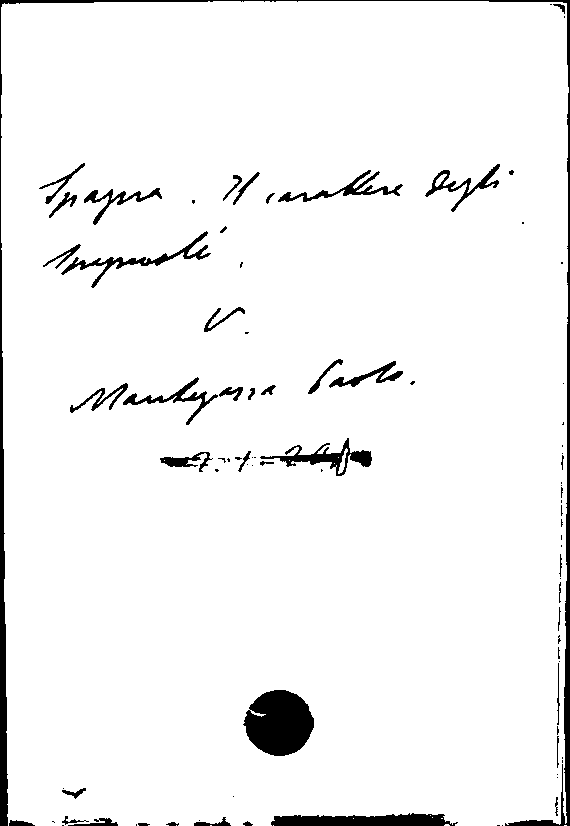 Spagna. Il carattere degli
spagnoli.
V.
Mantegazza Paolo.